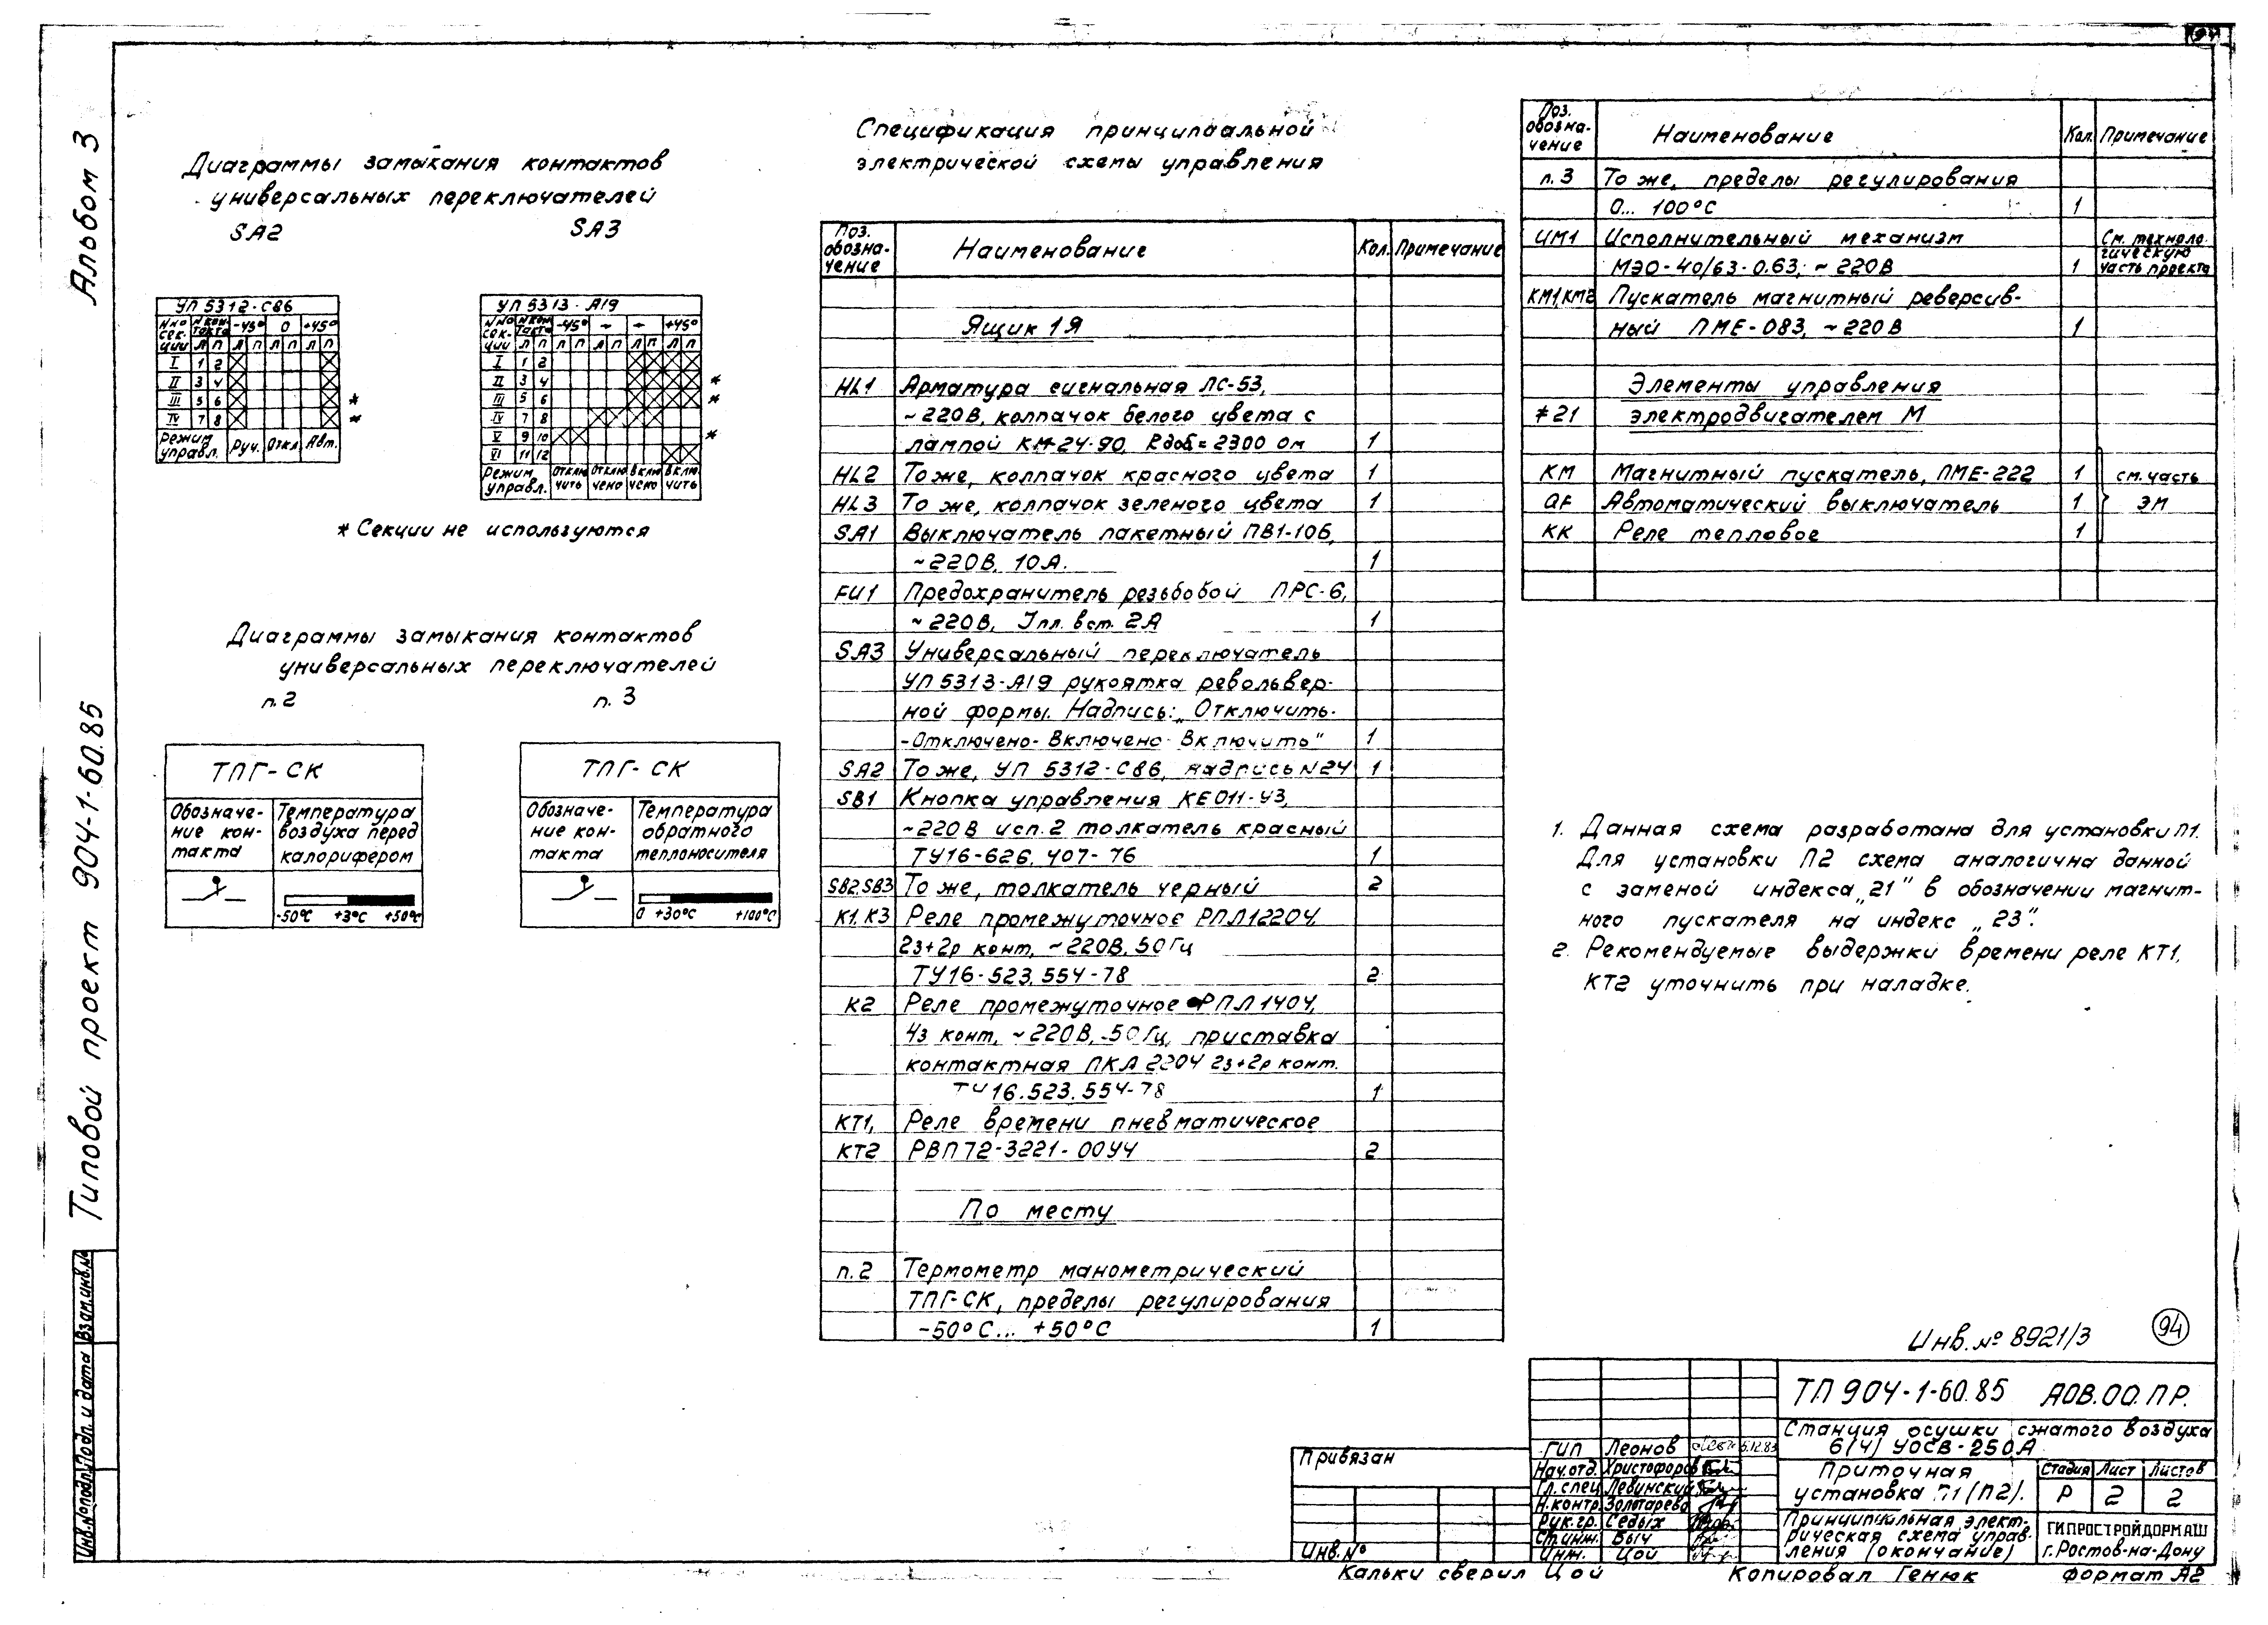 94
Альбом 3
Типовой проект 904-1-60.85
Инв.№подл.
Подп. и дата
Взам.инв.№
Диаграммы замыкания контактов
универсальных переключателей
SA2
SA3
УП 5312-С86
№№ секции
№ контакта
-45°
0
+45°
Л П Л П Л П Л П
I 1 2
II 3 4
III 5 6 *
IV 7 8 *
Режим управл.
Руч.
Откл.
Авт.
УП 5313-А19
№№ секции
№ контакта
-45°
+45°
Л П Л П Л П Л П Л П
I 1 2
II 3 4 *
III 5 6 *
IV 7 8
V 9 10 *
VI 11 12
Режим управл.
Отклю чить
Отклю чено
Вклю чено
Вклю чить
* Секции не используются
Диаграммы замыкания контактов
универсальных переключателей
п.2
п. 3
ТПГ-СК
Обозначе-
ние кон-
такта
Температура
воздуха перед
калорифером
-50°С +3°С +50°С
ТПГ-СК
Обозначе-
ние кон-
такта
Температура
обратного
теплоносителя
0 +30°С +100°С
Спецификация принципиальной
электрической схемы управления
Поз. обозна- чение
Наименование
Кол.
Примечание
Ящик 1Я
HL1 Арматура сигнальная ЛС-53,
~220В, колпачок белого цвета с
лампой КМ-24-90, Rдоб=2300 ом 1
HL2 То же, колпачок красного цвета 1
HL3 То же, колпачок зеленого цвета 1
SA1 Выключатель пакетный ПВ1-10Б,
~220В, 10А. 1
FU1 Предохранитель резьбовой ПРС-6,
~220В, Iпл. вст. 2А 1
SA3 Универсальный переключатель
УП5313-А19 рукоятка револьвер-
ной формы. Надпись: „Отключить-
-Отключено- Включено- Включить" 1
SA2 То же, УП 5312-С86, надпись N24 1
SB1 Кнопка управления КЕ011-У3,
~220В исп.2 толкатель красный
ТУ16-626.407-76 1
SB2,SB3 То же, толкатель черный 2
К1,К3 Реле промежуточное РПЛ12204,
2з+2р конт, ~220В, 50Гц
ТУ16-523.554-78 2
К2 Реле промежуточное РПЛ1404,
4з конт, ~220В, 50Гц, приставка
контактная ПКЛ 2204 2з+2р конт.
ТУ16.523.554-78 1
КТ1, Реле времени пневматическое
КТ2 РВП72-3221-00У4 2
По месту
п.2 Термометр манометрический
ТПГ-СК, пределы регулирования
-50°С... +50°С 1
Поз. обозна- чение
Наименование
Кол.
Примечание
п.3 То же, пределы регулирования
0... 100°С 1
ИМ1 Исполнительный механизм
МЭО-40/63-0.63; ~220В 1
См. техноло-
гическую
часть проекта
КМ1,КМ2 Пускатель магнитный реверсив-
ный ПМЕ-083, ~220В 1
Элементы управления
≠21 электродвигателем М
КМ Магнитный пускатель, ПМЕ-222 1 см. часть
QF Автоматический выключатель 1 ЭМ
КК Реле тепловое 1
1. Данная схема разработана для установки П1.
Для установки П2 схема аналогична данной
с заменой индекса „21" в обозначении магнит-
ного пускателя на индекс „23".
2. Рекомендуемые выдержки времени реле КТ1,
КТ2 уточнить при наладке.
Инв.№ 8921/3
94
ТП 904-1-60.85 АОВ.00.ПР.
Станция осушки сжатого воздуха
6(4) УОСВ-250А
Приточная
установка П1(П2).
Стадия Лист Листов
Р 2 2
Принципиальная элект-
рическая схема управ-
ления (окончание)
ГИПРОСТРОЙДОРМАШ
г.Ростов-на-Дону
ГИП Леонов
Нач.отд. Христофоров
Гл.спец Левинский
Н.контр. Золотарева
Рук.гр. Седых
Ст.инж. Быч
Инж. Цой
Привязан
Инв.№
Кальки сверил Цой
Копировал Генюк
формат А2